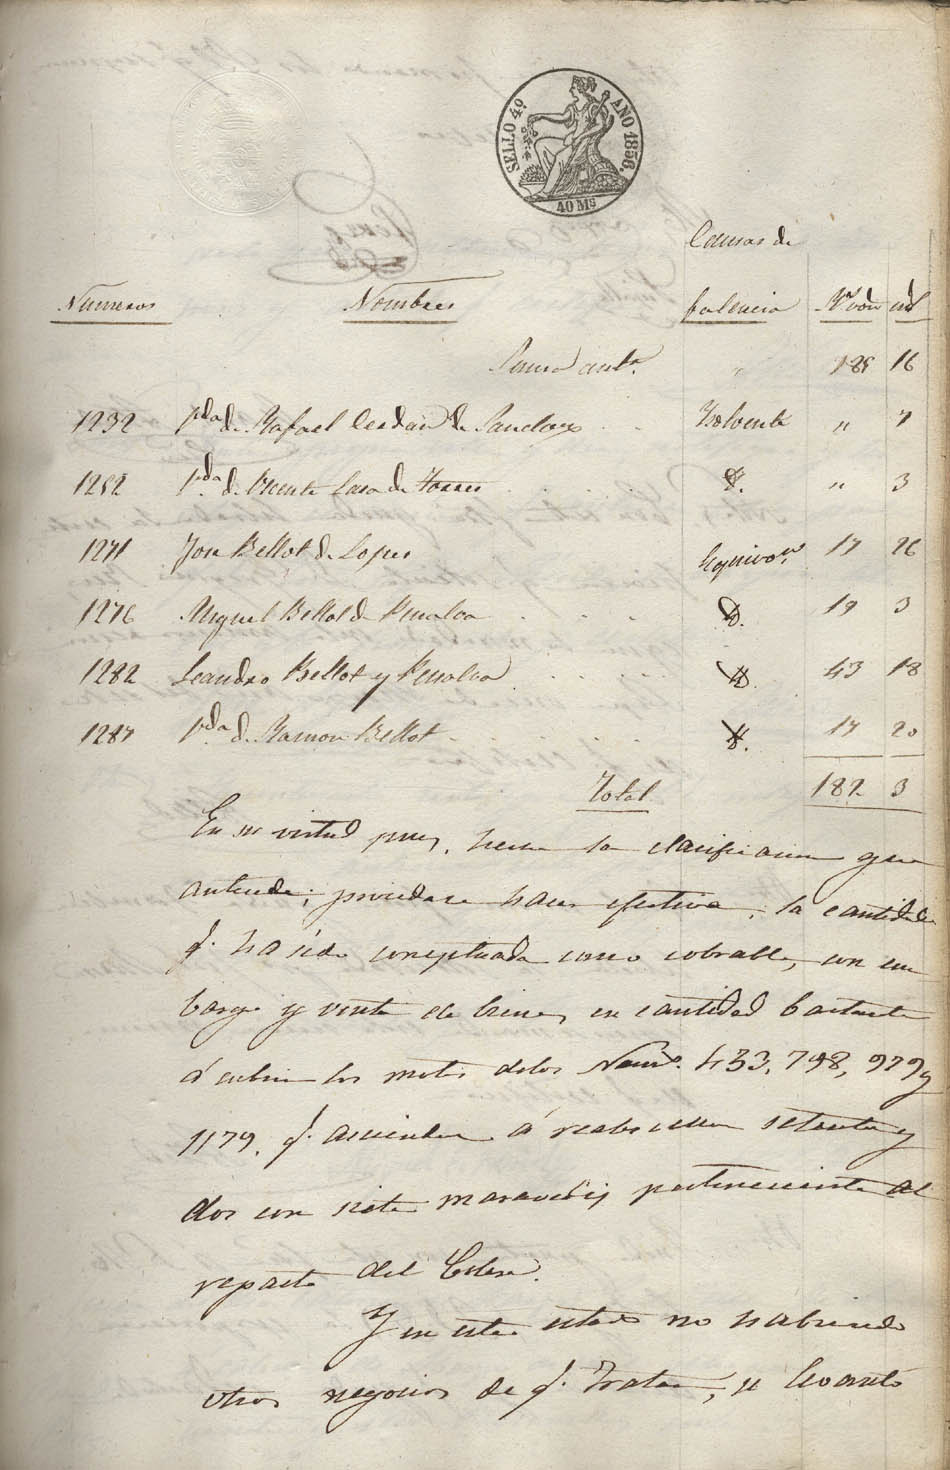 SELLO 4º AÑO 1856.
40 Ms
Causas de
Numeros Nombres falencia Rs von ms
Suma antr. " 185 16
1232 Vda. de Rafael Cerdan de Sanchez Ysolvente " 7
1252 Vda. de Vicente Lara de Torres Yd. " 3
1271 Jose Bellot de Lopes Equivocn. 17 26
1276 Miguel Bellot de Penalva Yd. 19 3
1282 Leandro Bellot y Penalva Yd. 43 18
1287 Vda. de Ramon Bellot Yd. 17 20
Total 182 3
En su virtud pues, hecha la clasificacion que
antecede; procedase hacer efectiva, la cantidad
q. ha sido conceptuada como cobrable, con em
bargo y venta de bienes en cantidad bastante
á cubrir las cuotas de los Nums. 433, 798, 979 y
1179, q. ascienden á reales vellon setenta y
dos con siete maravedis pertenecientes al
reparto del Colera.
Y en este estado no habiendo
otros negocios de q. tratar, se levantó